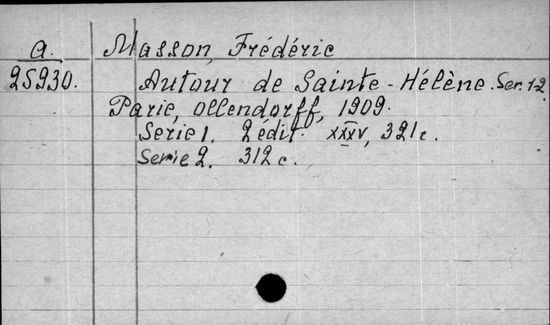 a. Masson, Frédéric
25930. Autour de Sainte-Hélène. Ser. 1-2
Paris, Ollendorff, 1909.
Serie 1. 2 édit. XXXV, 321 c.
Serie 2. 312 c.